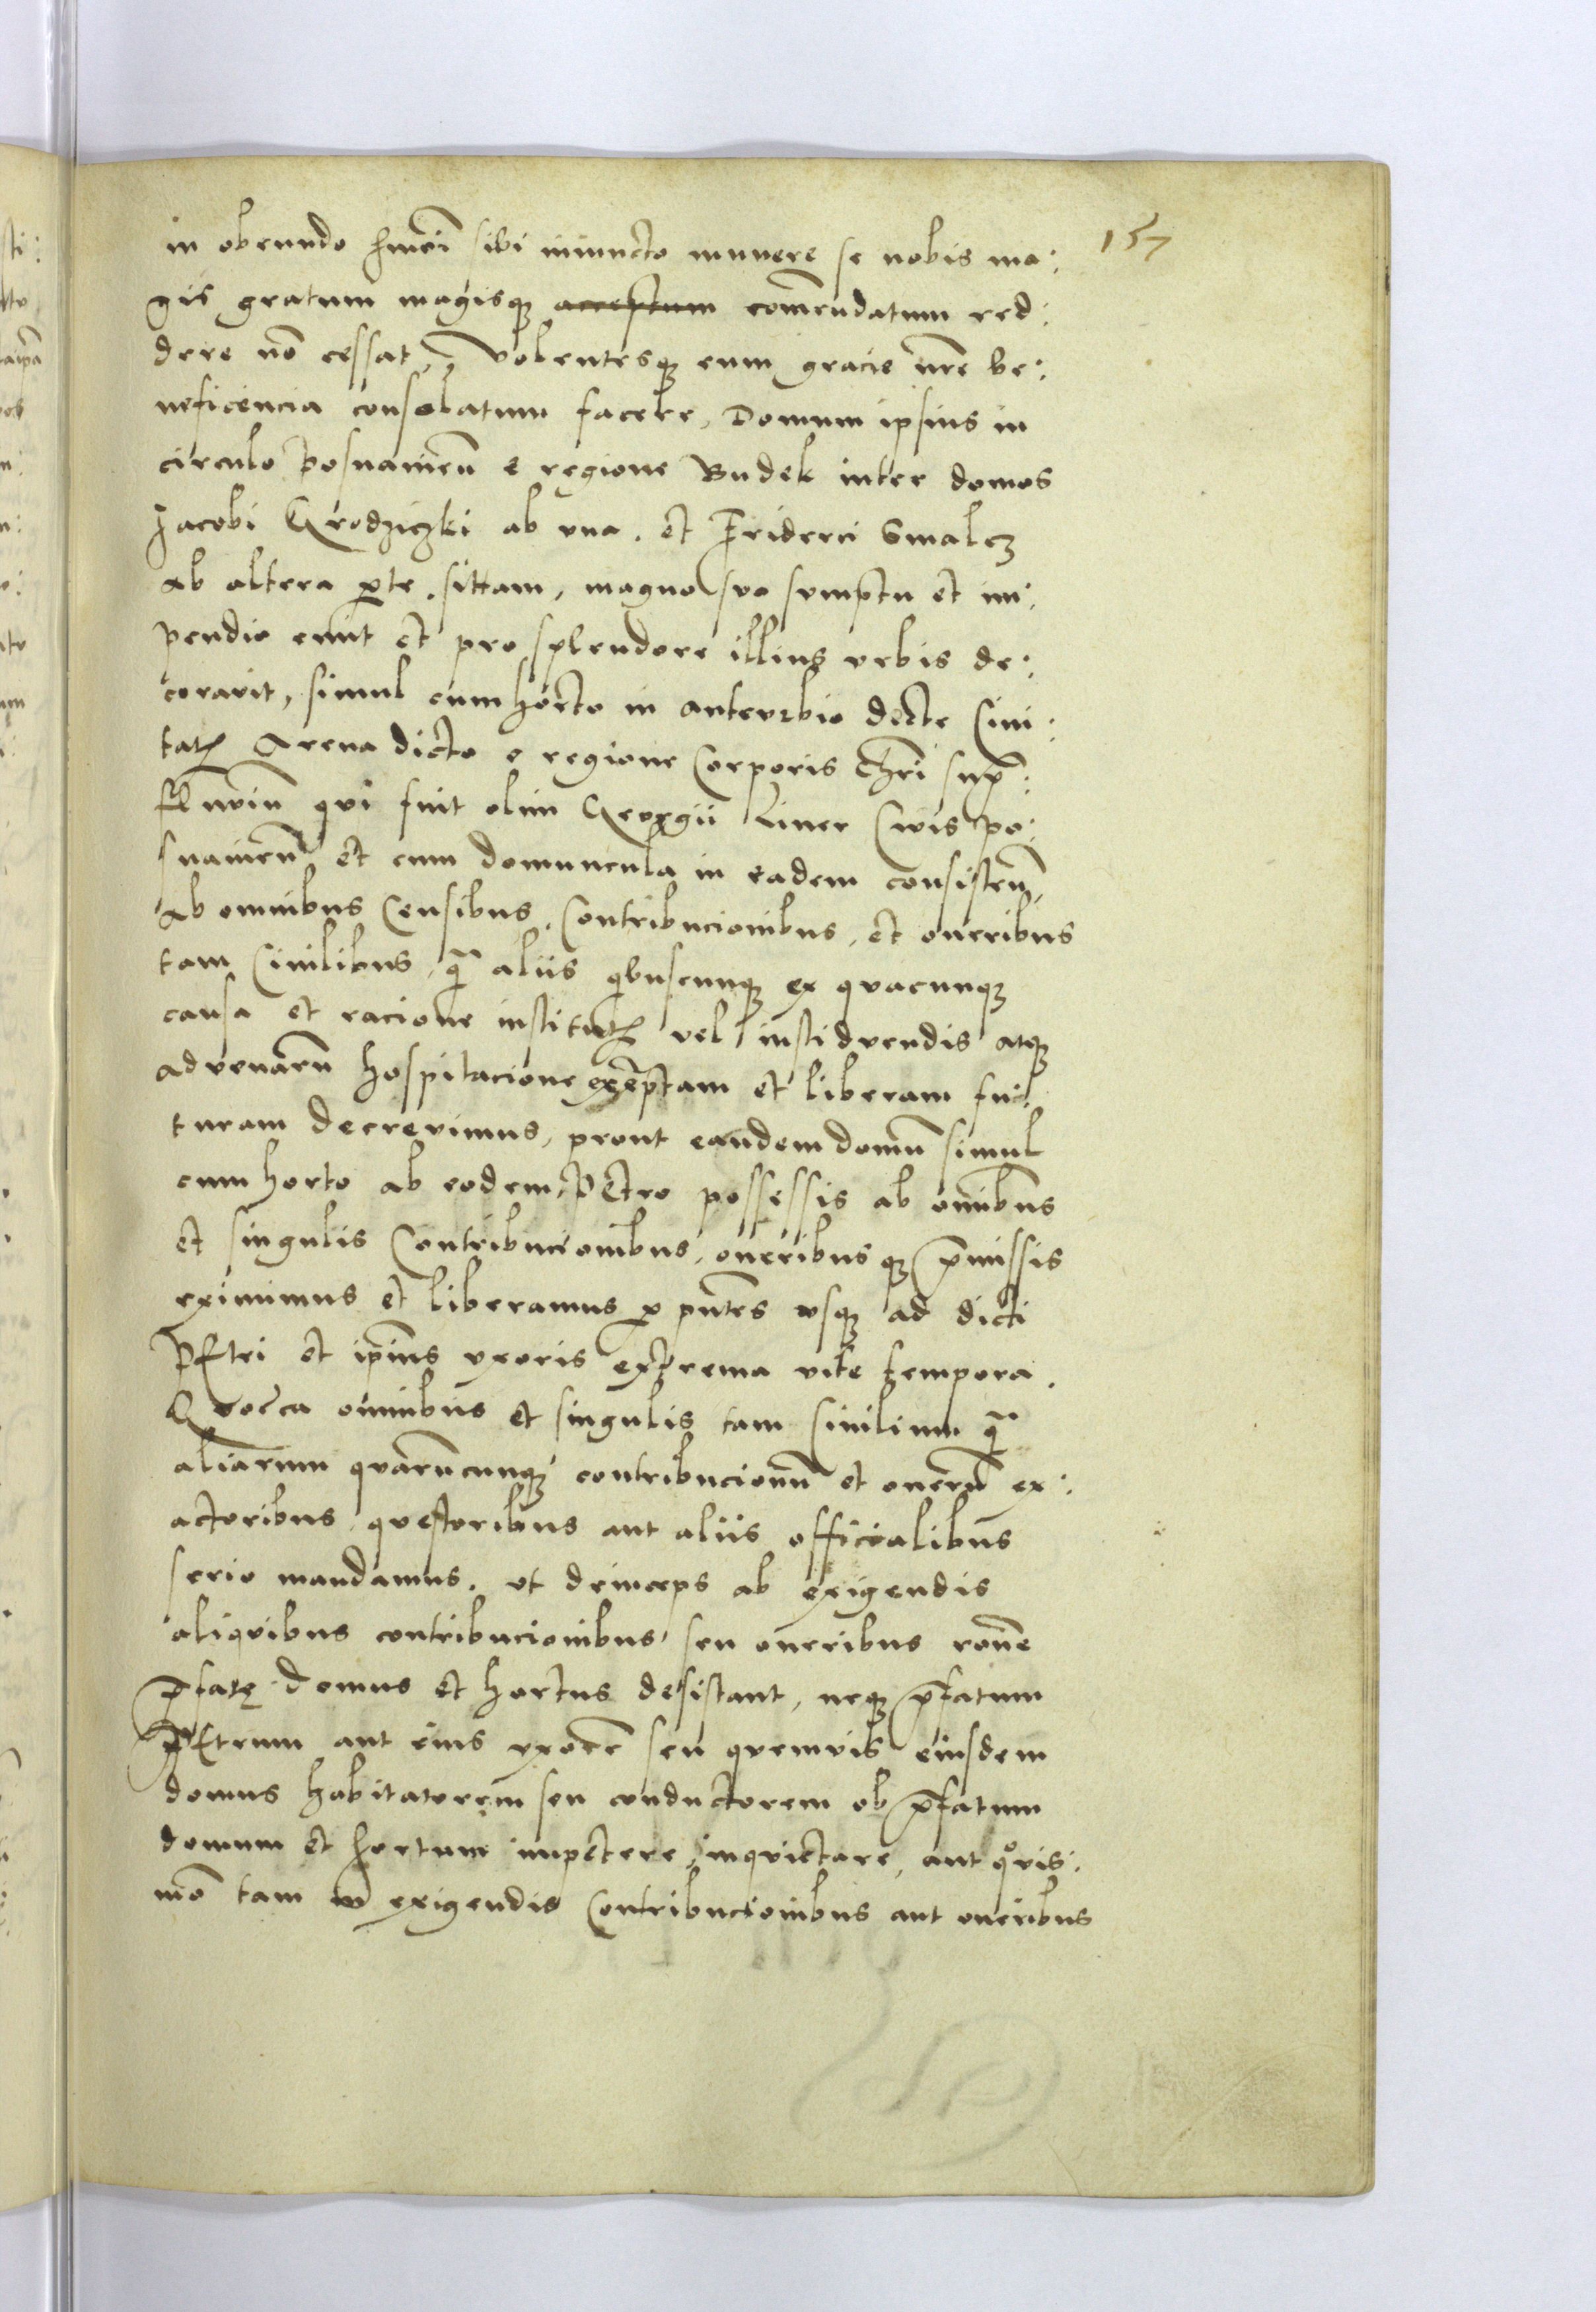 157
in obeundo hmoi sibi iniuncto munere se nobis ma:
gis gratum magisq3 acceptum com̄endatum red:
dere nō cessat, Volentesq3 eum gracie nr̄e be:
neficencia consolatum facere, Domum ipsius in
circulo Posnanien̄ e regione Budek inter domos
Jacobi Grodziczki ab vna. et Friderici Smalcz
ab altera pte. sittam, magno suo sumptu et im:
pendio emit et pro splendore illius vrbis de:
coravit, simul cum horto in antevrbio dicte Civi:
tatis Arena dicto e regione Corporis Chri sup
fluviū qui fuit olim Georgii Liner Civis Po:
snanien̄ et cum domuncula in eadem consisten̄,
ab omnibus Censibus, Contribucionibus, et oneribus
tam Civilibus, q̄ aliis qbuscunq3 ex quacunq3
causa et racione institutis vel instituendis atq3
advenarū hospitacione exēptam et liberam fu:
turam decrevimus, prout eandem domū simul
cum horto ab eodem PEtro possessis ab om̄ibus
et singulis Contribucionibus, oneribusq3 p̄missis
eximimus et liberamus p pn̄tes usq3 ad dicti
PEtri et ip̄ius vxoris extrema vite tempora.
Quocca omnibus et singulis tam Civilium q̄
aliarum quarūcunq3 contribucionū et onerū ex:
actoribus, questoribus aut aliis officialibus
serio mandamus. vt deinceps ab exigendis
aliquibus contribucionibus, seu oneribus ron̄e
p̄fatę domus et hortus desistant, neq3 p̄fatum
PEtrum aut eius vxorē seu quemvis eiusdem
domus habitatorem seu conductorem ob p̄fatum
domum et hortum impetere, inquietare, aut quovis:
mō tam in exigendis Contribucionibus aut oneribus